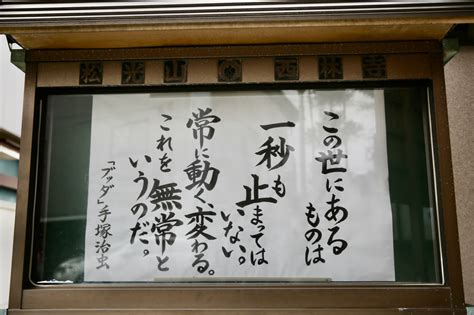 松光山 西林寺
この世にある
ものは
一秒も
止まっては
いない。
常に動く、変わる。
これを無常と
いうのだ。
「ブッダ」手塚治虫